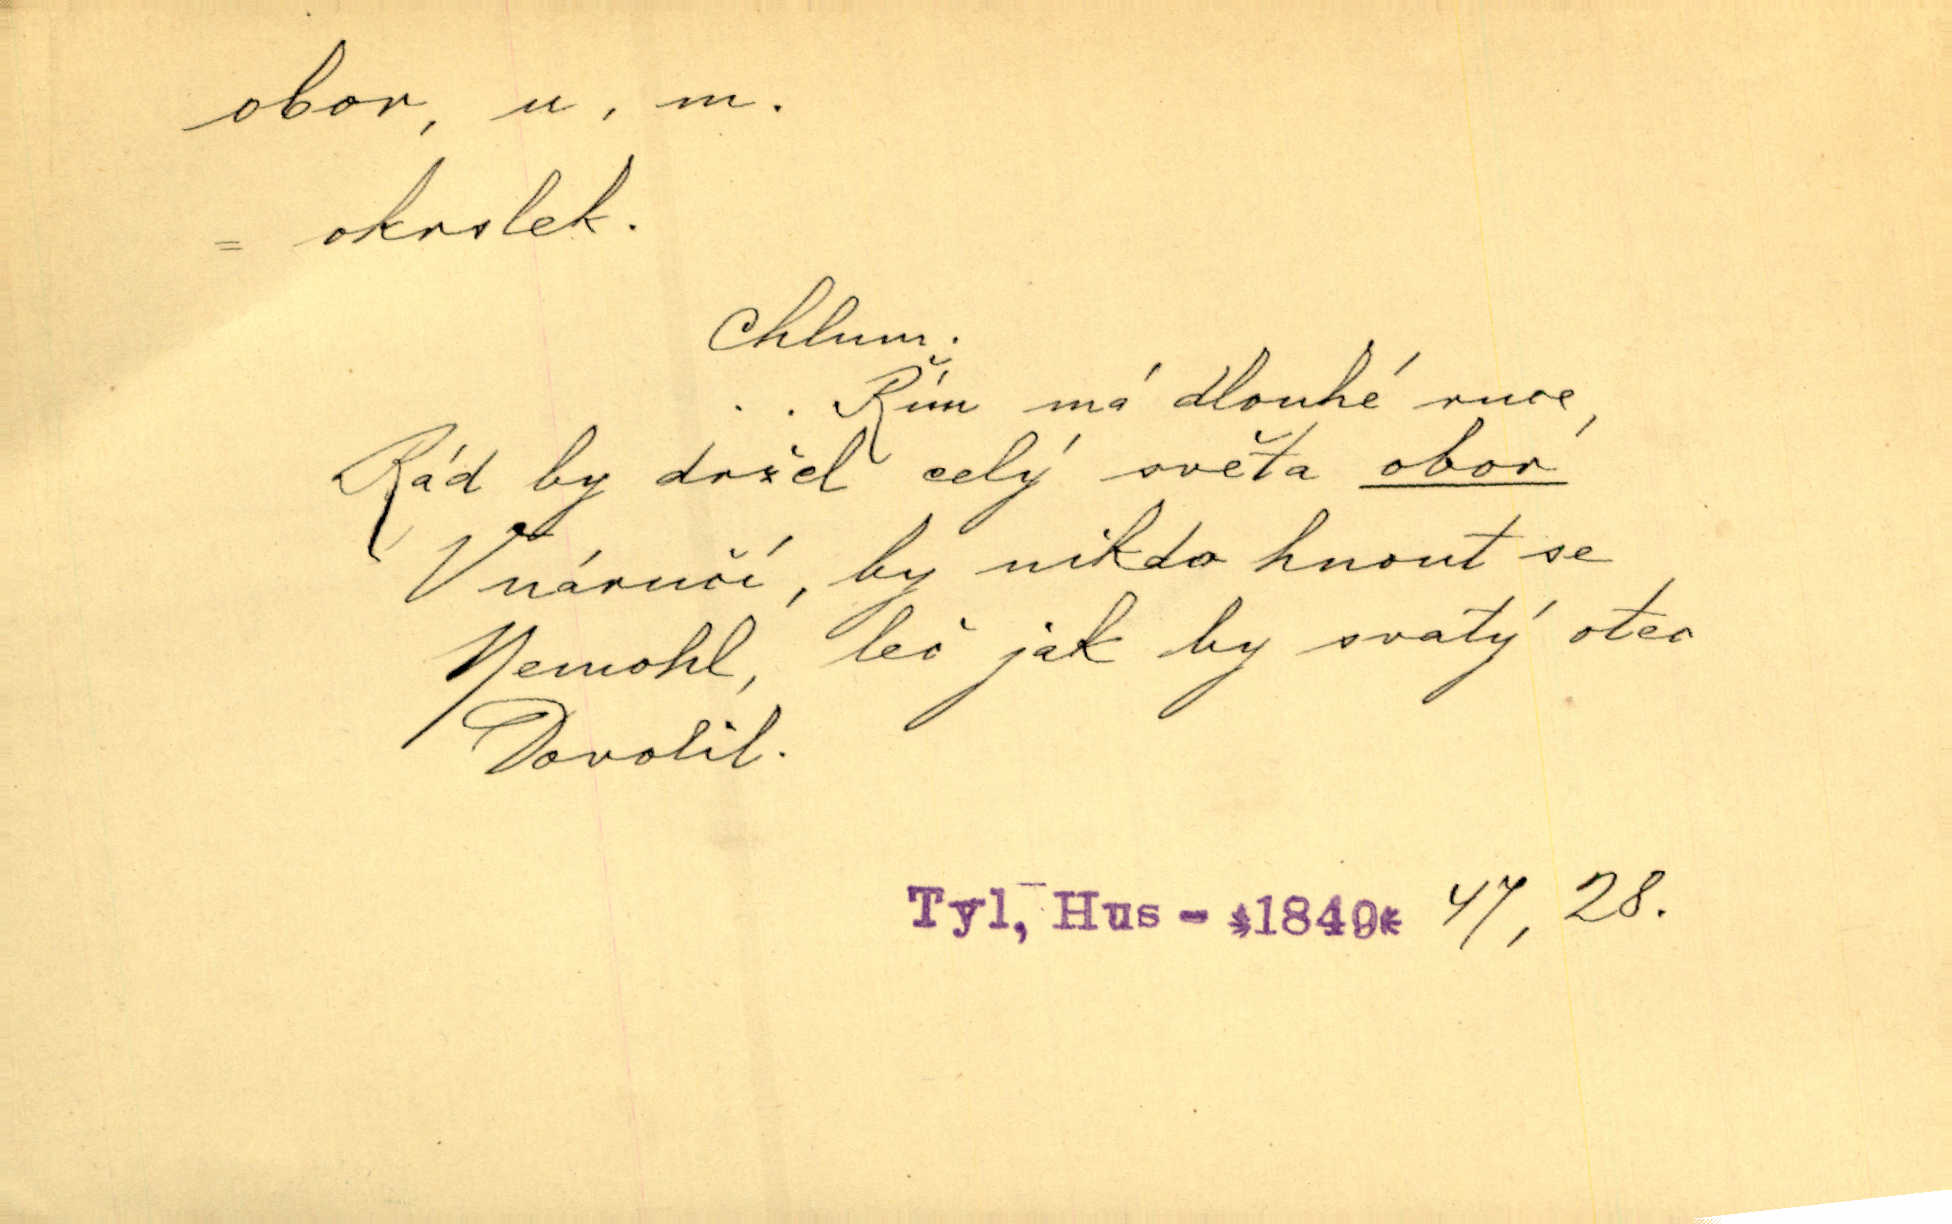 obor, u, m.
= okrslek.
Chlum.
. . Řím má dlouhé ruce,
Rád by držel celý světa obor
V náručí, by nikdo hnout se
Nemohl, leč jak by svatý otec
Dovolil.
Tyl, Hus - *1849* 47, 28.